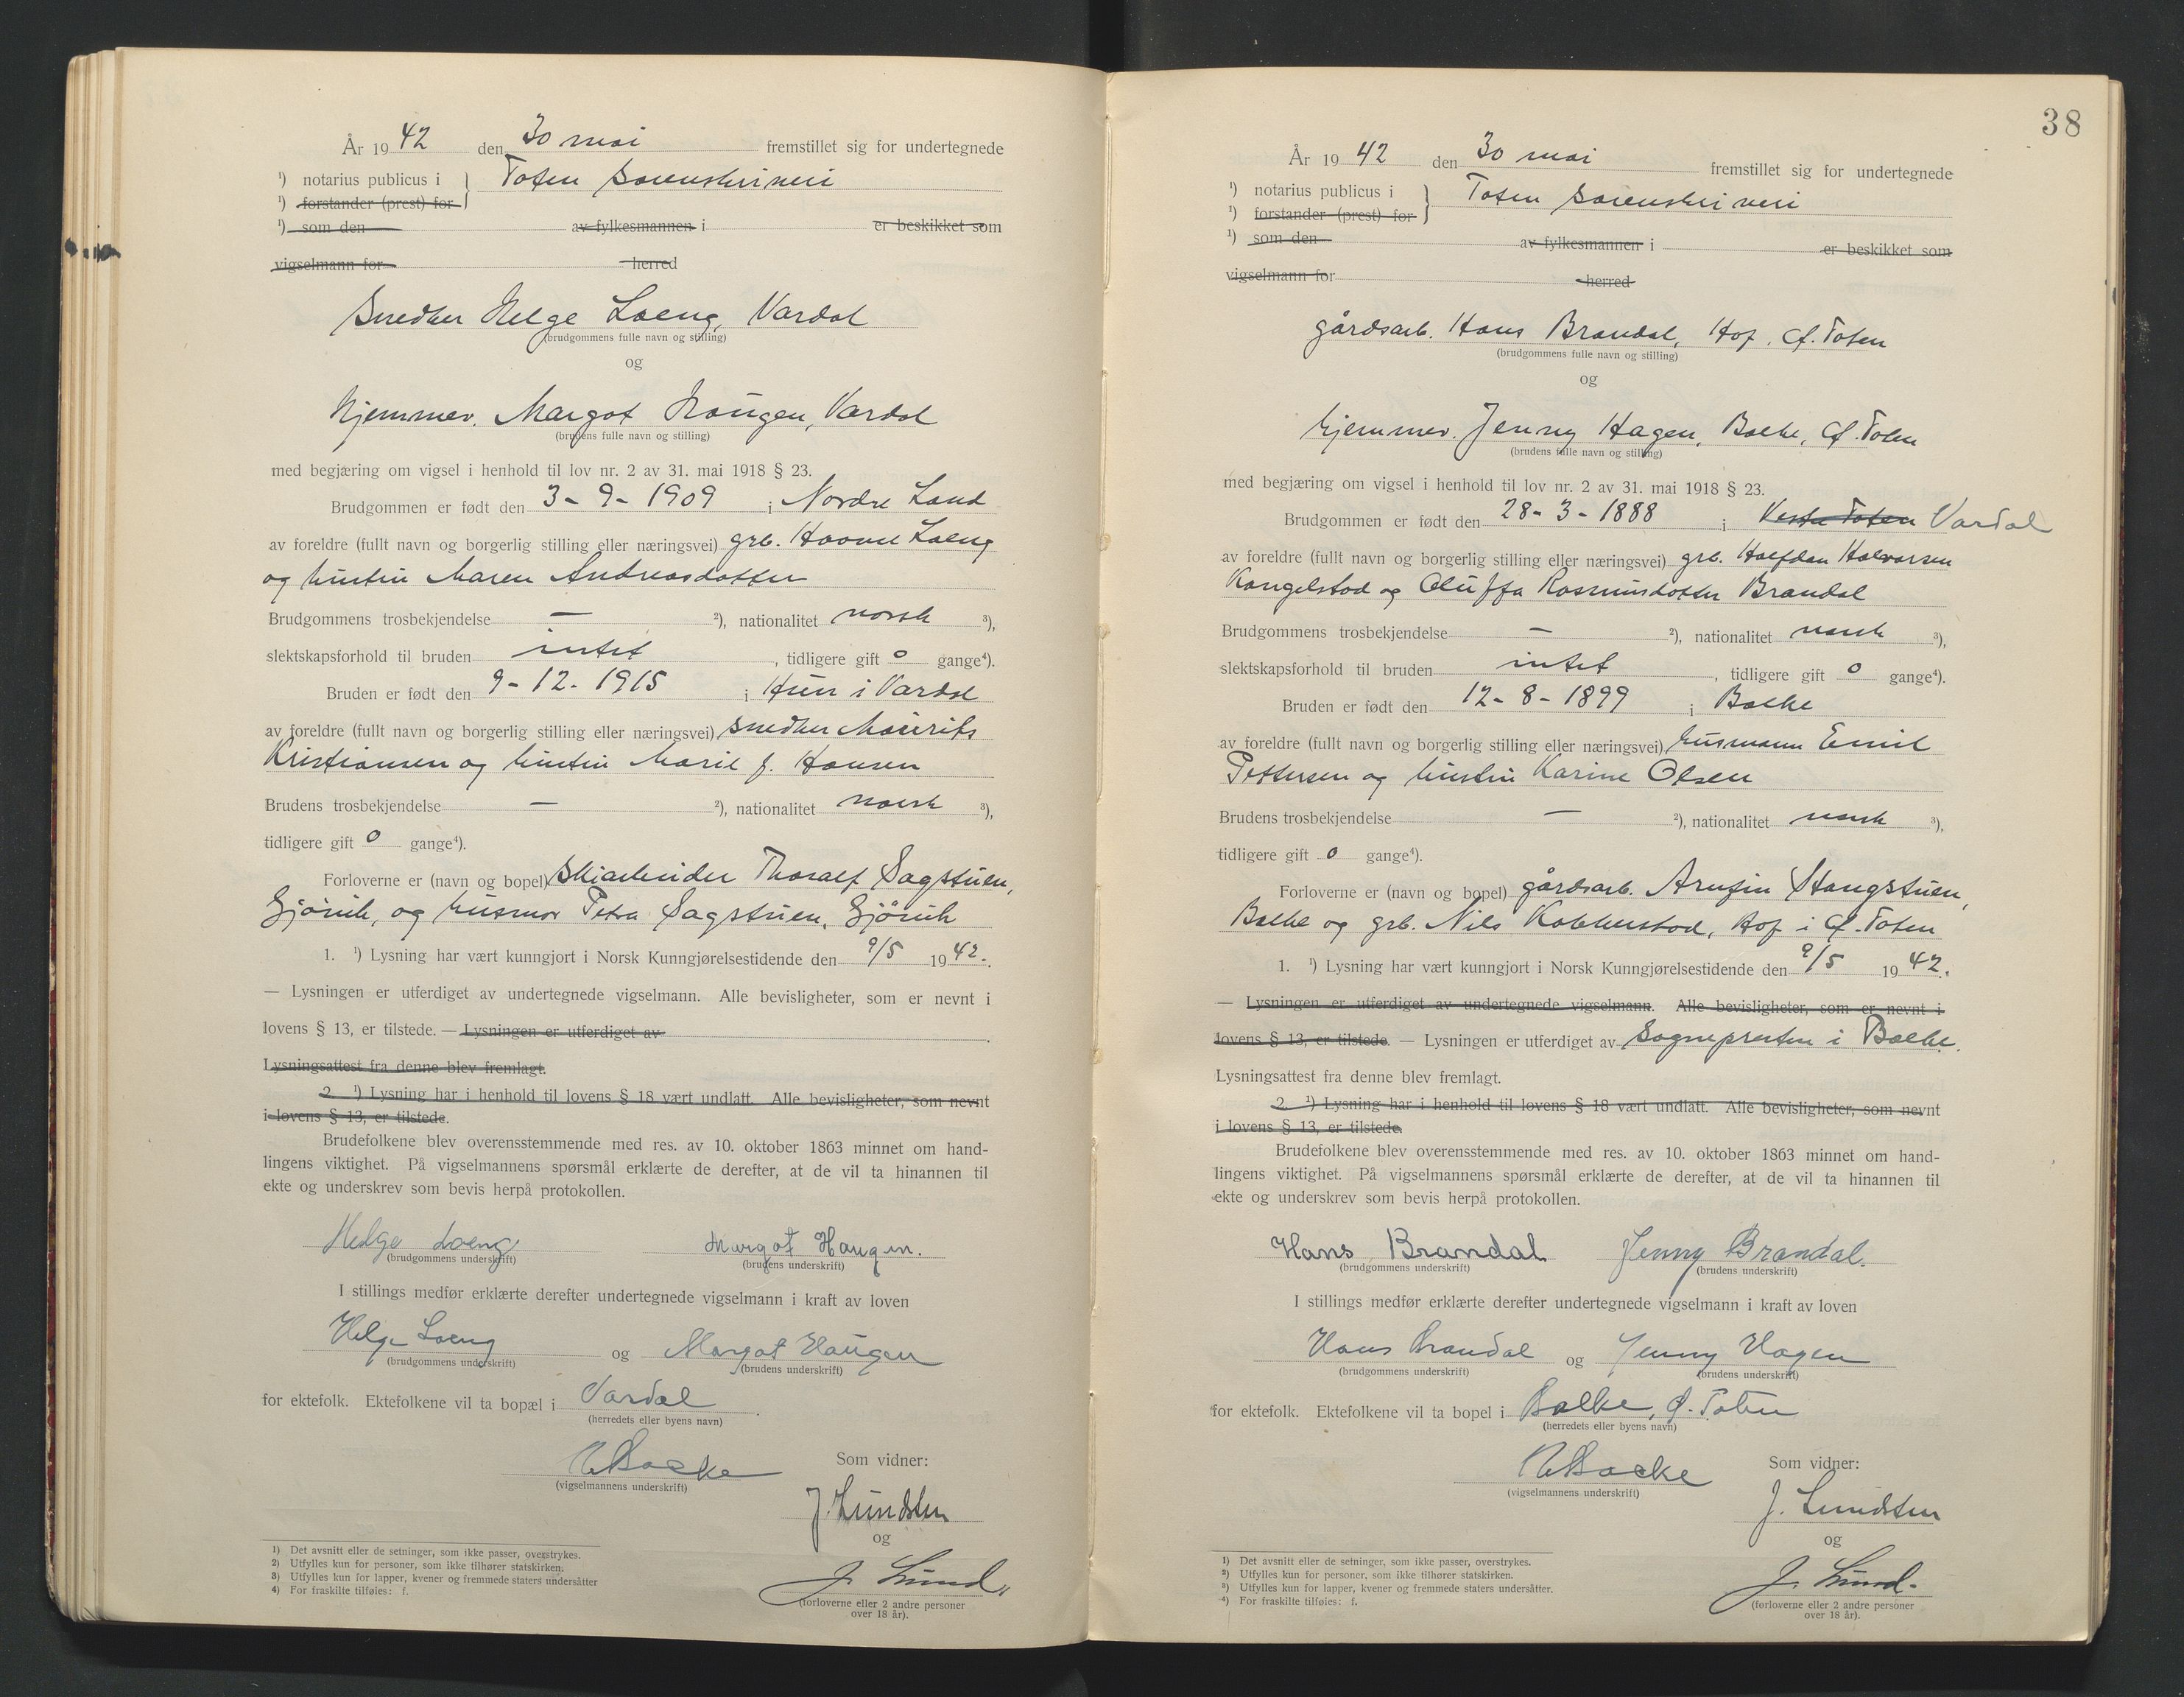 År 1942 den 30 mai fremstillet sig for undertegnede
¹) notarius publicus i } Toten Sorenskriveri
¹) forstander (prest) for
¹) som den av fylkesmannen i er beskikket som
vigselmann for herred
Snedker Helge Loeng, Vardal
(brudgommens fulle navn og stilling)
og
hjemmev. Margot Haugen, Vardal
(brudens fulle navn og stilling)
med begjæring om vigsel i henhold til lov nr. 2 av 31. mai 1918 § 23.
Brudgommen er født den 3-9-1909 i Nordre Land
av foreldre (fullt navn og borgerlig stilling eller næringsvei) grb. Loeng
og hustru Maren Andreasdotter
Brudgommens trosbekjendelse — ²), nationalitet norsk ³),
slektskapsforhold til bruden intet, tidligere gift 0 gange⁴).
Bruden er født den 9-12-1915 i Hunn i Vardal
av foreldre (fullt navn og borgerlig stilling eller næringsvei) snedker Mauritz
Kristiansen og hustru Marie f. Hansen
Brudens trosbekjendelse — ²), nationalitet norsk ³),
tidligere gift 0 gange⁴).
Forloverne er (navn og bopel) skiarbeider Thoralf Sagstuen,
Gjøvik, og husmor Petra Sagstuen, Gjøvik
1. ¹) Lysning har vært kunngjort i Norsk Kunngjørelsestidende den 9/5 1942.
— Lysningen er utferdiget av undertegnede vigselmann. Alle bevisligheter, som er nevnt i
lovens § 13, er tilstede. — Lysningen er utferdiget av
Lysningsattest fra denne blev fremlagt.
2. ¹) Lysning har i henhold til lovens § 18 vært undlatt. Alle bevisligheter, som nevnt
i lovens § 13, er tilstede.
Brudefolkene blev overensstemmende med res. av 10. oktober 1863 minnet om hand-
lingens viktighet. På vigselmannens spørsmål erklærte de derefter, at de vil ta hinannen til
ekte og underskrev som bevis herpå protokollen.
Helge Loeng Margot Haugen.
(brudgommens underskrift) (brudens underskrift)
I stillings medfør erklærte derefter undertegnede vigselmann i kraft av loven
Helge Loeng og Margot Haugen
(brudgommens underskrift) (brudens underskrift)
for ektefolk. Ektefolkene vil ta bopæl i Vardal.
(herredets eller byens navn)
Som vidner:
(vigselmannens underskrift)
J. Lundsten
og
J. Lund
(forloverne eller 2 andre personer
over 18 år).
1) Det avsnitt eller de setninger, som ikke passer, overstrykes.
2) Utfylles kun for personer, som ikke tilhører statskirken.
3) Utfylles kun for lapper, kvener og fremmede staters undersåtter
4) For fraskilte tilføies: f.
38
År 1942 den 30 mai fremstillet sig for undertegnede
¹) notarius publicus i } Toten Sorenskriveri
¹) forstander (prest) for
¹) som den av fylkesmannen i er beskikket som
vigselmann for herred
gårdsarb. Hans Brandal, Hof, Ø. Toten
(brudgommens fulle navn og stilling)
og
hjemmev. Jenny Hagen, Balke, Ø. Toten
(brudens fulle navn og stilling)
med begjæring om vigsel i henhold til lov nr. 2 av 31. mai 1918 § 23.
Brudgommen er født den 28-3-1888 i Vestre Toten Vardal
av foreldre (fullt navn og borgerlig stilling eller næringsvei) grb. Halfdan Halvorsen
Kongelstad og Oluffa Rasmusdotter Brandal
Brudgommens trosbekjendelse — ²), nationalitet norsk ³),
slektskapsforhold til bruden intet, tidligere gift 0 gange⁴).
Bruden er født den 12-8-1899 i Balke
av foreldre (fullt navn og borgerlig stilling eller næringsvei) husmann Emil
Pettersen og hustru Karine Olsen
Brudens trosbekjendelse — ²), nationalitet norsk ³),
tidligere gift 0 gange⁴).
Forloverne er (navn og bopel) gårdsarb. Arnfin Stangstuen,
Balke og grb. Nils Kobberstad, Hof i Ø. Toten
1. ¹) Lysning har vært kunngjort i Norsk Kunngjørelsestidende den 9/5 1942.
— Lysningen er utferdiget av undertegnede vigselmann. Alle bevisligheter, som er nevnt i
lovens § 13, er tilstede. — Lysningen er utferdiget av Sognepresten i Balke.
Lysningsattest fra denne blev fremlagt.
2. ¹) Lysning har i henhold til lovens § 18 vært undlatt. Alle bevisligheter, som nevnt
i lovens § 13, er tilstede.
Brudefolkene blev overensstemmende med res. av 10. oktober 1863 minnet om hand-
lingens viktighet. På vigselmannens spørsmål erklærte de derefter, at de vil ta hinannen til
ekte og underskrev som bevis herpå protokollen.
Hans Brandal Jenny Brandal.
(brudgommens underskrift) (brudens underskrift)
I stillings medfør erklærte derefter undertegnede vigselmann i kraft av loven
Hans Brandal og Jenny Hagen
(brudgommens underskrift) (brudens underskrift)
for ektefolk. Ektefolkene vil ta bopel i Balke, Ø. Toten
(herredets eller byens navn)
Som vidner:
(vigselmannens underskrift)
J. Lundsten
og
J. Lund.
(forloverne eller 2 andre personer
over 18 år).
1) Det avsnitt eller de setninger, som ikke passer, overstrykes.
2) Utfylles kun for personer, som ikke tilhører statskirken.
3) Utfylles kun for lapper, kvener og fremmede staters undersåtter.
4) For fraskilte tilføies: f.